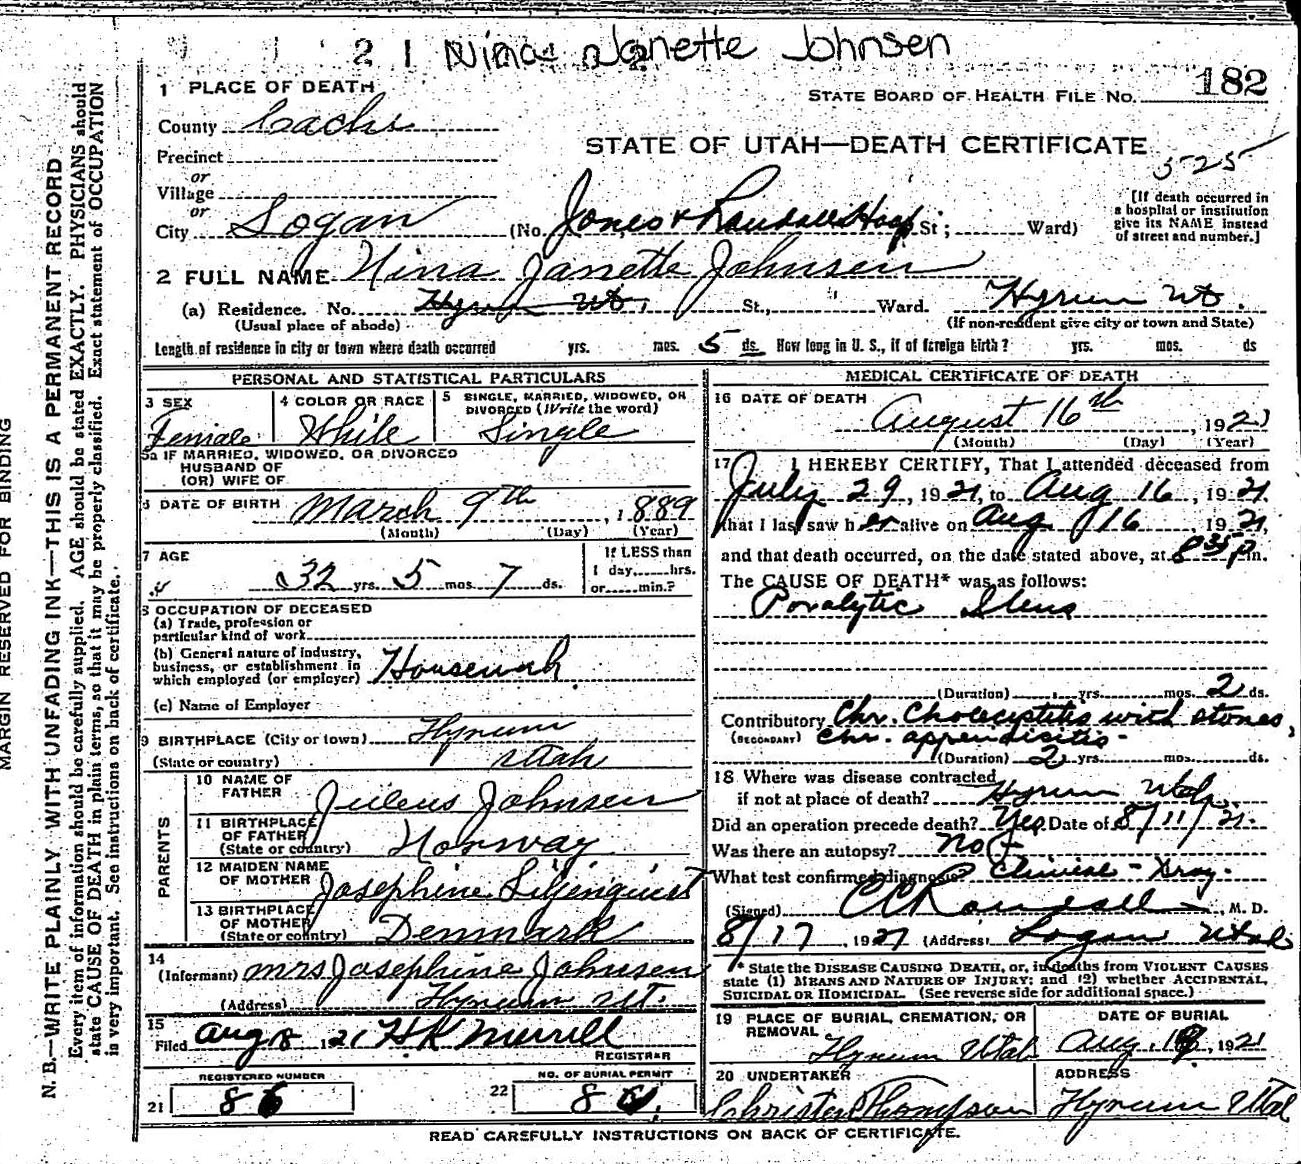 2 1 Nina Janette Johnsen
182
STATE BOARD OF HEALTH FILE No.
STATE OF UTAH—DEATH CERTIFICATE
525
1 PLACE OF DEATH
County Cache
Precinct
or
Village
or
City Logan (No. Jones & Randall Hosp St; Ward)
[If death occurred in
a hospital or institution
give its NAME instead
of street and number.]
2 FULL NAME Nina Janette Johnsen
(a) Residence. No. Hyrum Ut. St., Ward. Hyrum Ut.
(Usual place of abode) (If non-resident give city or town and State)
Length of residence in city or town where death occurred yrs. mos. 5 ds. How long in U. S., if of foreign birth? yrs. mos. ds
PERSONAL AND STATISTICAL PARTICULARS
3 SEX 4 COLOR OR RACE 5 SINGLE, MARRIED, WIDOWED, OR
DIVORCED (Write the word)
Female White Single
5a IF MARRIED, WIDOWED, OR DIVORCED
HUSBAND OF
(OR) WIFE OF
6 DATE OF BIRTH March 9th, 1889
(Month) (Day) (Year)
7 AGE If LESS than
32 yrs. 5 mos 7 ds. 1 day,......hrs.
or......min.?
8 OCCUPATION OF DECEASED
(a) Trade, profession or
particular kind of work
(b) General nature of industry,
business, or establishment in
which employed (or employer) Housework
(c) Name of Employer
9 BIRTHPLACE (City or town) Hyrum
(State or country) Utah
PARENTS
10 NAME OF
FATHER Julius Johnsen
11 BIRTHPLACE
OF FATHER
(State or country) Norway
12 MAIDEN NAME
OF MOTHER Josephine Liljenquist
13 BIRTHPLACE
OF MOTHER
(State or country) Denmark
14
(Informant) Mrs Josephine Johnsen
(Address) Hyrum Ut.
15
Filed Aug 18 1921 H K Merrill
REGISTRAR
REGISTERED NUMBER NO. OF BURIAL PERMIT
21 86 22 86
MEDICAL CERTIFICATE OF DEATH
16 DATE OF DEATH
August 16th, 1921
(Month) (Day) (Year)
17 I HEREBY CERTIFY, That I attended deceased from
July 29, 1921, to Aug 16, 1921.
that I last saw her alive on Aug 16, 1921,
and that death occurred, on the date stated above, at 8 35 p m.
The CAUSE OF DEATH* was as follows:
Paralytic Ileus
(Duration) yrs. mos. 2 ds.
Contributory Chr. Cholecystitis with stones,
(SECONDARY) Chr. appendicitis.
(Duration) 2 yrs. mos. ds.
18 Where was disease contracted
if not at place of death? Hyrum Utah.
Did an operation precede death? Yes Date of 8/11/21.
Was there an autopsy? No
What test confirmed diagnosis? Clinical - Xray.
(Signed) C C Randall, M. D.
8/17, 1921 (Address) Logan Utah
* State the DISEASE CAUSING DEATH, or, in deaths from VIOLENT CAUSES
state (1) MEANS AND NATURE OF INJURY; and (2) whether ACCIDENTAL,
SUICIDAL OR HOMICIDAL. (See reverse side for additional space.)
19 PLACE OF BURIAL, CREMATION, OR
REMOVAL DATE OF BURIAL
Hyrum Utah Aug. 19, 1921
20 UNDERTAKER ADDRESS
Christen Thompson Hyrum Utah
READ CAREFULLY INSTRUCTIONS ON BACK OF CERTIFICATE.
MARGIN RESERVED FOR BINDING
N. B.—WRITE PLAINLY WITH UNFADING INK—THIS IS A PERMANENT RECORD
Every item of information should be carefully supplied. AGE should be stated EXACTLY. PHYSICIANS should
state CAUSE OF DEATH in plain terms, so that it may be properly classified. Exact statement of OCCUPATION
is very important. See instructions on back of certificate.